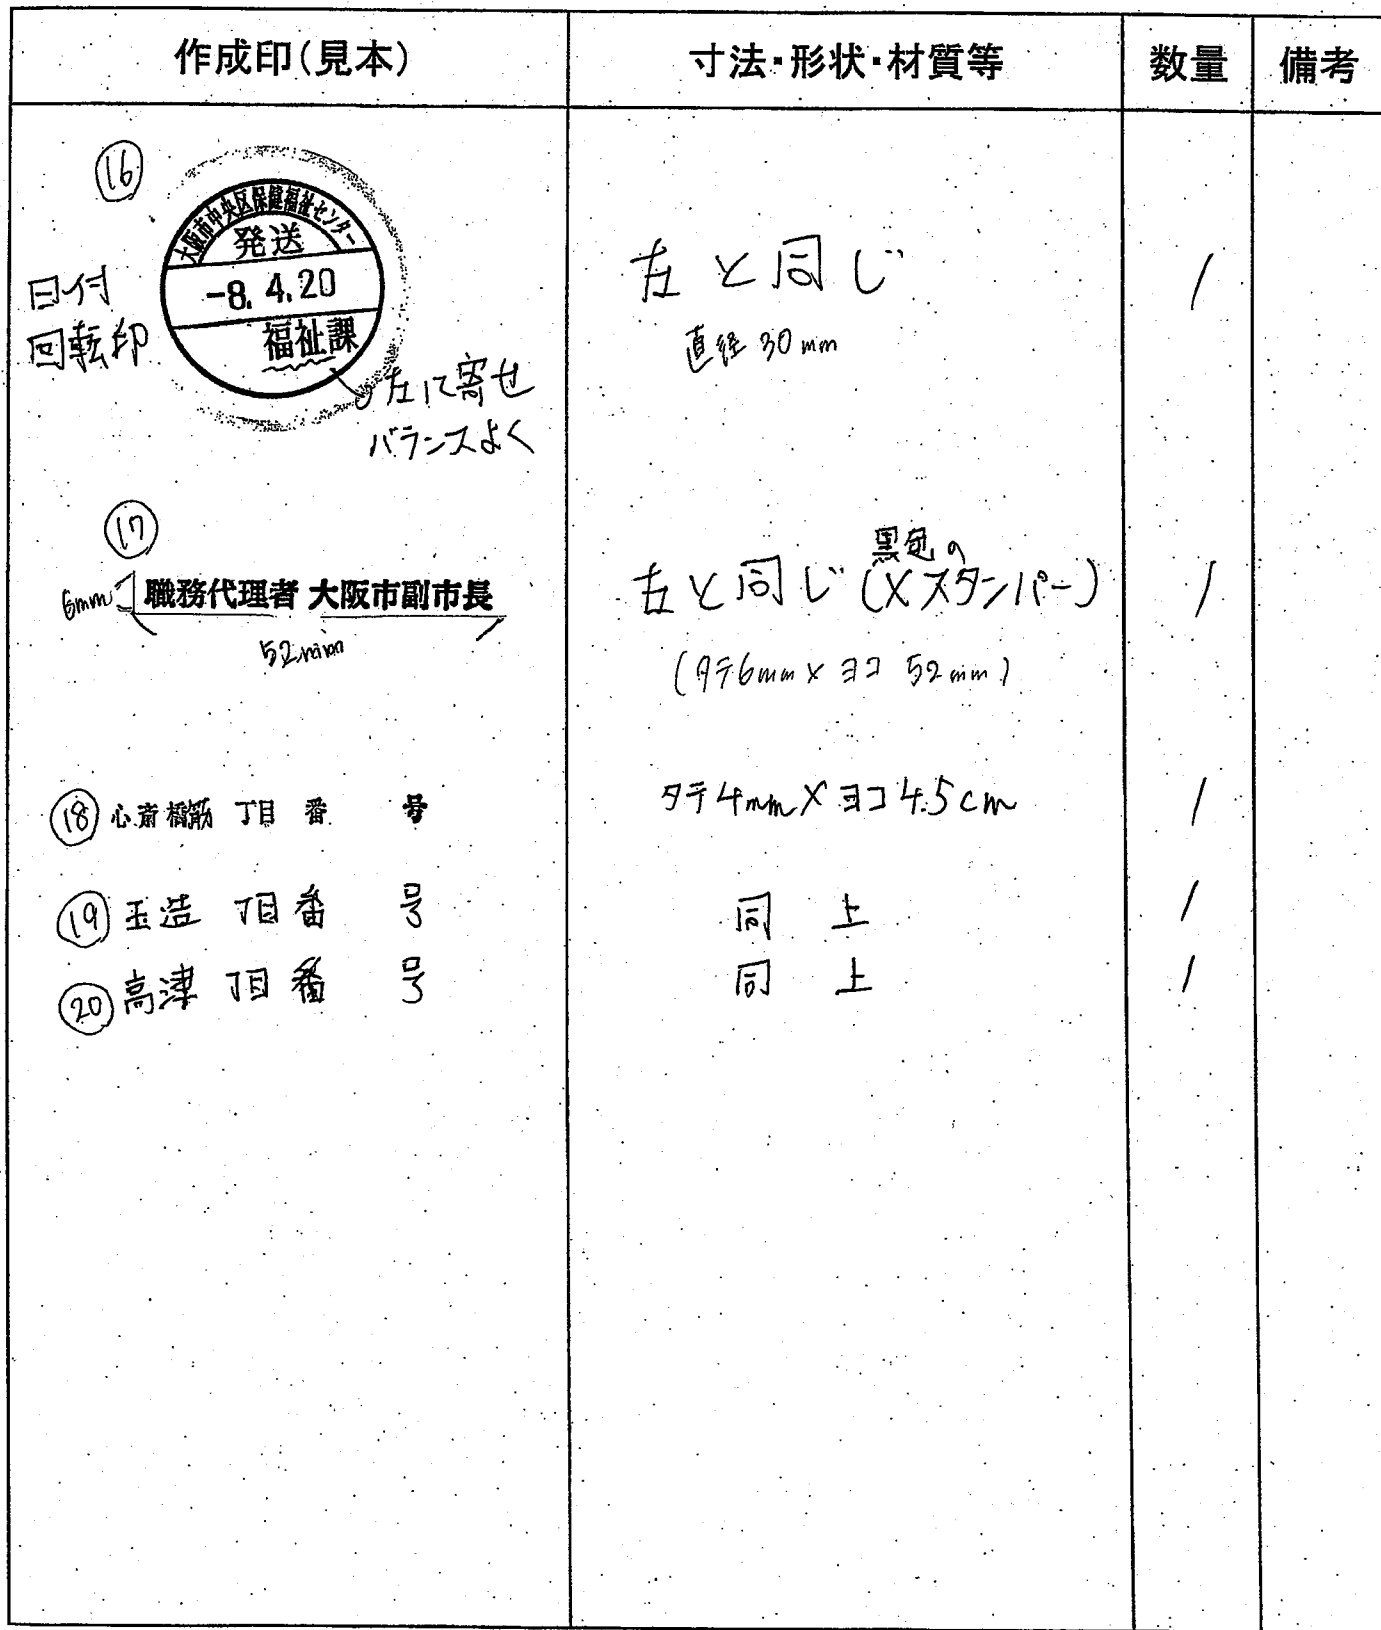 作成印(見本) 寸法・形状・材質等 数量 備考
⑯
大阪市中央区保健福祉センター
発送
-8. 4. 20
福祉課
日付
回転印
左に寄せ
バランスよく
左と同じ 1
直径 30mm
⑰
6mm 職務代理者 大阪市副市長
52mm
黒色の
左と同じ (Xスタンパー) 1
(タテ6mm×ヨコ 52mm)
⑱ 心斎橋筋 丁目 番 号 タテ4mm×ヨコ4.5cm 1
⑲ 玉造 丁目 番 号 同上 1
⑳ 高津 丁目 番 号 同上 1